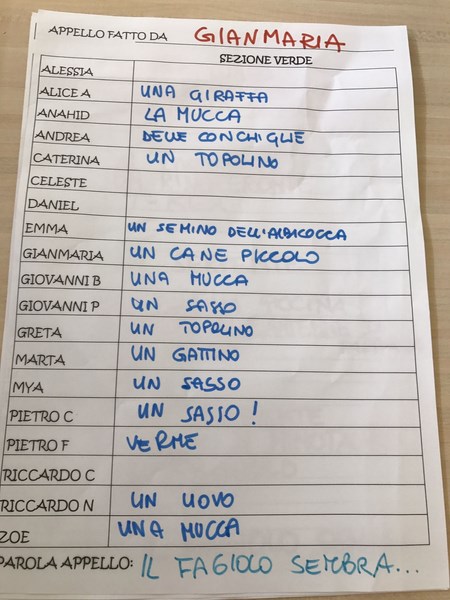 APPELLO FATTO DA GIANMARIA
SEZIONE VERDE
ALESSIA
ALICE A UNA GIRAFFA
ANAHID LA MUCCA
ANDREA DELLE CONCHIGLIE
CATERINA UN TOPOLINO
CELESTE
DANIEL
EMMA UN SEMINO DELL'ALBICOCCA
GIANMARIA UN CANE PICCOLO
GIOVANNI B UNA MUCCA
GIOVANNI P UN SASSO
GRETA UN TOPOLINO
MARTA UN GATTINO
MYA UN SASSO
PIETRO C UN SASSO!
PIETRO F VERME
RICCARDO C
RICCARDO N UN UOVO
ZOE UNA MUCCA
PAROLA APPELLO: IL FAGIOLO SEMBRA...